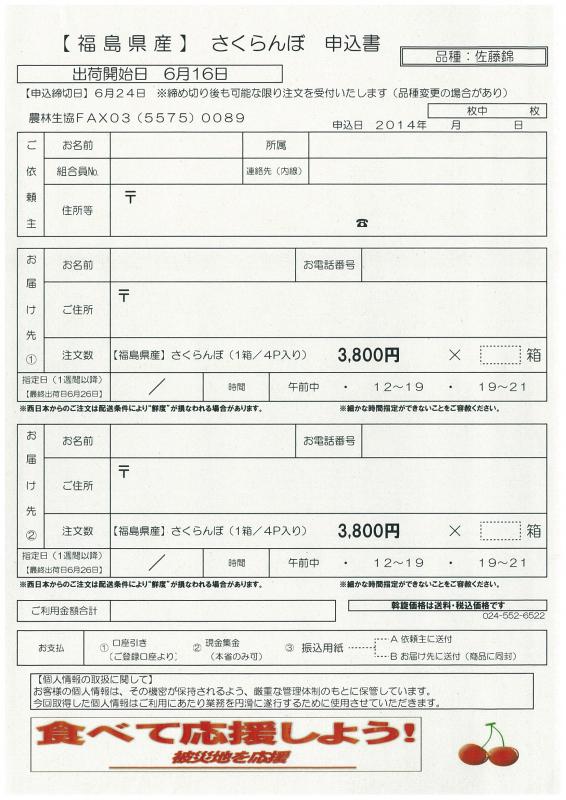 【福島県産】 さくらんぼ 申込書
品種：佐藤錦
出荷開始日 6月16日
【申込締切日】6月24日 ※締め切り後も可能な限り注文を受付いたします（品種変更の場合があり）
枚中 枚
農林生協FAX03（5575）0089
申込日 2014年 月 日
ご依頼主
お名前 所属
組合員No. 連絡先（内線）
住所等 〒
☎
お届け先①
お名前 お電話番号
ご住所 〒
注文数 【福島県産】さくらんぼ（1箱／4P入り） 3,800円 × 箱
指定日（1週間以降） ／ 時間 午前中 ・ 12～19 ・ 19～21
【最終出荷日6月26日】
※西日本からのご注文は配送条件により"鮮度"が損なわれる場合があります。 ※細かな時間指定ができないことをご容赦ください。
お届け先②
お名前 お電話番号
ご住所 〒
注文数 【福島県産】さくらんぼ（1箱／4P入り） 3,800円 × 箱
指定日（1週間以降） ／ 時間 午前中 ・ 12～19 ・ 19～21
【最終出荷日6月26日】
※西日本からのご注文は配送条件により"鮮度"が損なわれる場合があります。 ※細かな時間指定ができないことをご容赦ください。
ご利用金額合計
斡旋価格は送料・税込価格です
024-552-6522
お支払 ① 口座引き （ご登録口座より） ② 現金集金 （本省のみ可） ③ 振込用紙
A 依頼主に送付
B お届け先に送付（商品に同封）
【個人情報の取扱に関して】
お客様の個人情報は、その機密が保持されるよう、厳重な管理体制のもとに保管しています。
今回取得した個人情報はご利用にあたり業務を円滑に遂行するために使用させていただきます。
食べて応援しよう!
被災地を応援